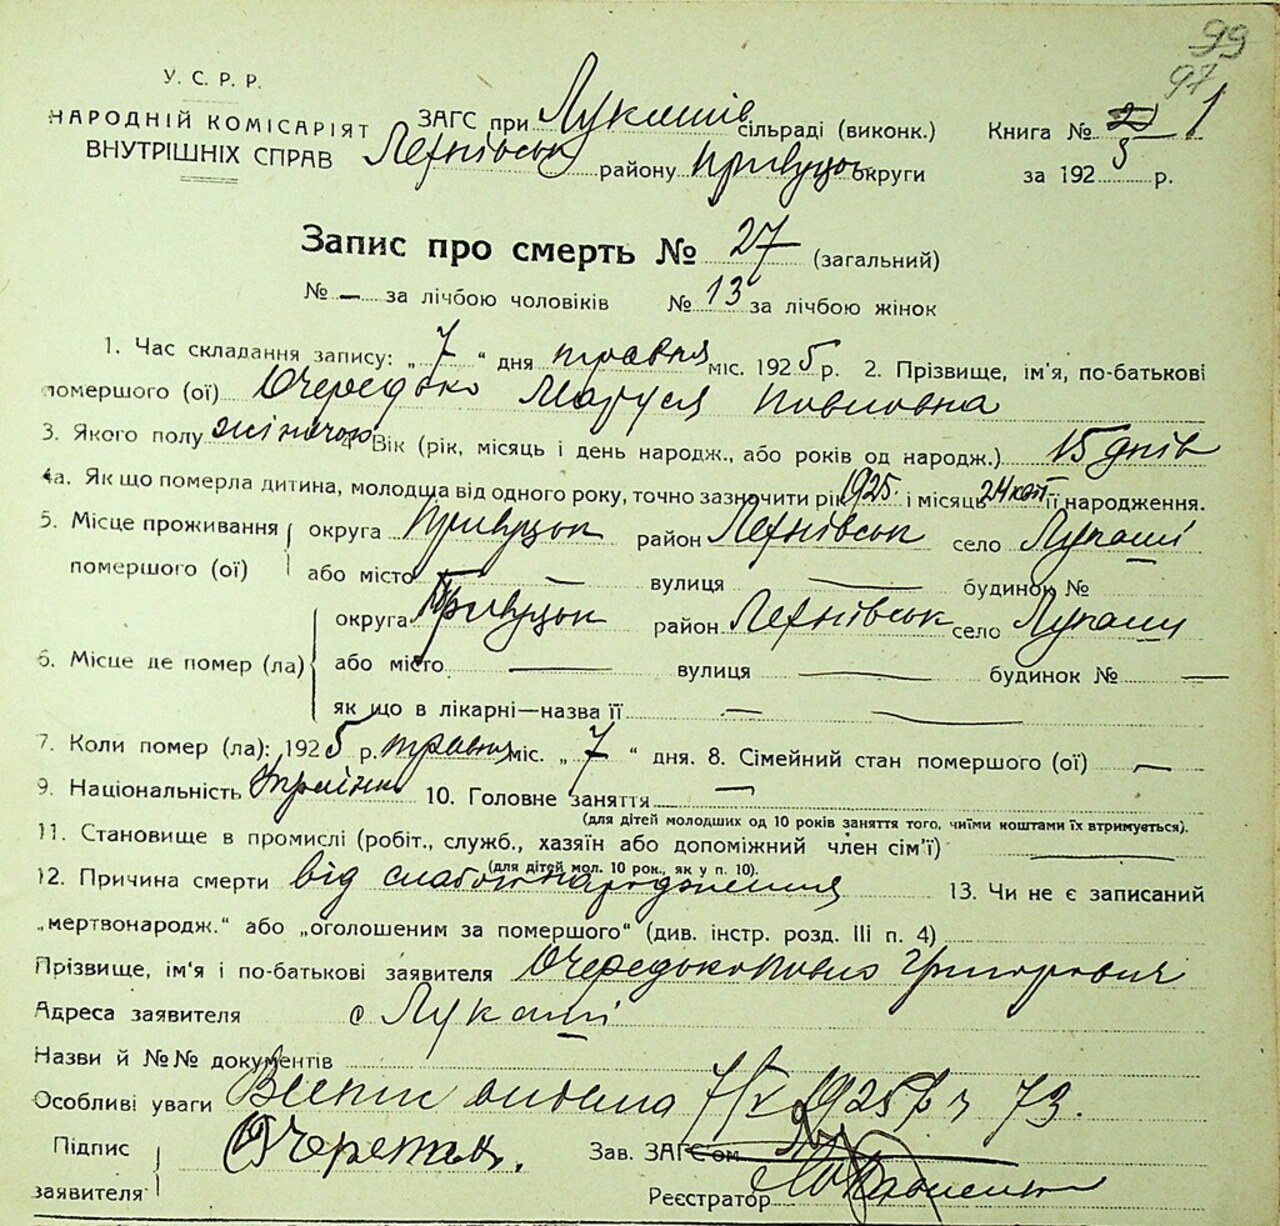 99
97
У. С. Р. Р.
НАРОДНІЙ КОМІСАРІЯТ
ВНУТРІШНІХ СПРАВ
ЗАГС при Лукашів сільраді (виконк.)
району Прилуцьк округи
Книга № 1
за 1925 р.
Запис про смерть № 27 (загальний)
№ — за лічбою чоловіків № 13 за лічбою жінок
1. Час складання запису: „ 7 “ дня травня міс. 1925 р. 2. Прізвище, ім'я, по-батькові
помершого (ої) Очередько Маруся Павловна
3. Якого полу жіночого 4. Вік (рік, місяць і день народж., або років од народж.) 15 днів
4а. Як що померла дитина, молодша від одного року, точно зазначити рік 1925 і місяць 24 її народження.
5. Місце проживання помершого (ої) округа Прилуцьк район село Лукаші
або місто — вулиця — будинок №
6. Місце де помер (ла) округа Прилуцьк район село Лукаші
або місто — вулиця — будинок № —
як що в лікарні—назва її — —
7. Коли помер (ла): 1925 р. травня міс. „ 7 “ дня. 8. Сімейний стан помершого (ої) —
9. Національність 10. Головне заняття —
(для дітей молодших од 10 років заняття того, чиїми коштами їх втримується).
11. Становище в промислі (робіт., служб., хазяїн або допоміжний член сім'ї) —
(для дітей мол. 10 рок., як у п. 10).
12. Причина смерти від народження 13. Чи не є записаний
„мертвонародж.“ або „оголошеним за помершого“ (див. інстр. розд. III п. 4)
Прізвище, ім'я і по-батькові заявителя Очередько Павло Григорович
Адреса заявителя с Лукаші
Назви й №№ документів
Особливі уваги Випис видана 7/V 1925 р № 73.
Підпис заявителя
Зав. ЗАГС'ом
Реєстратор